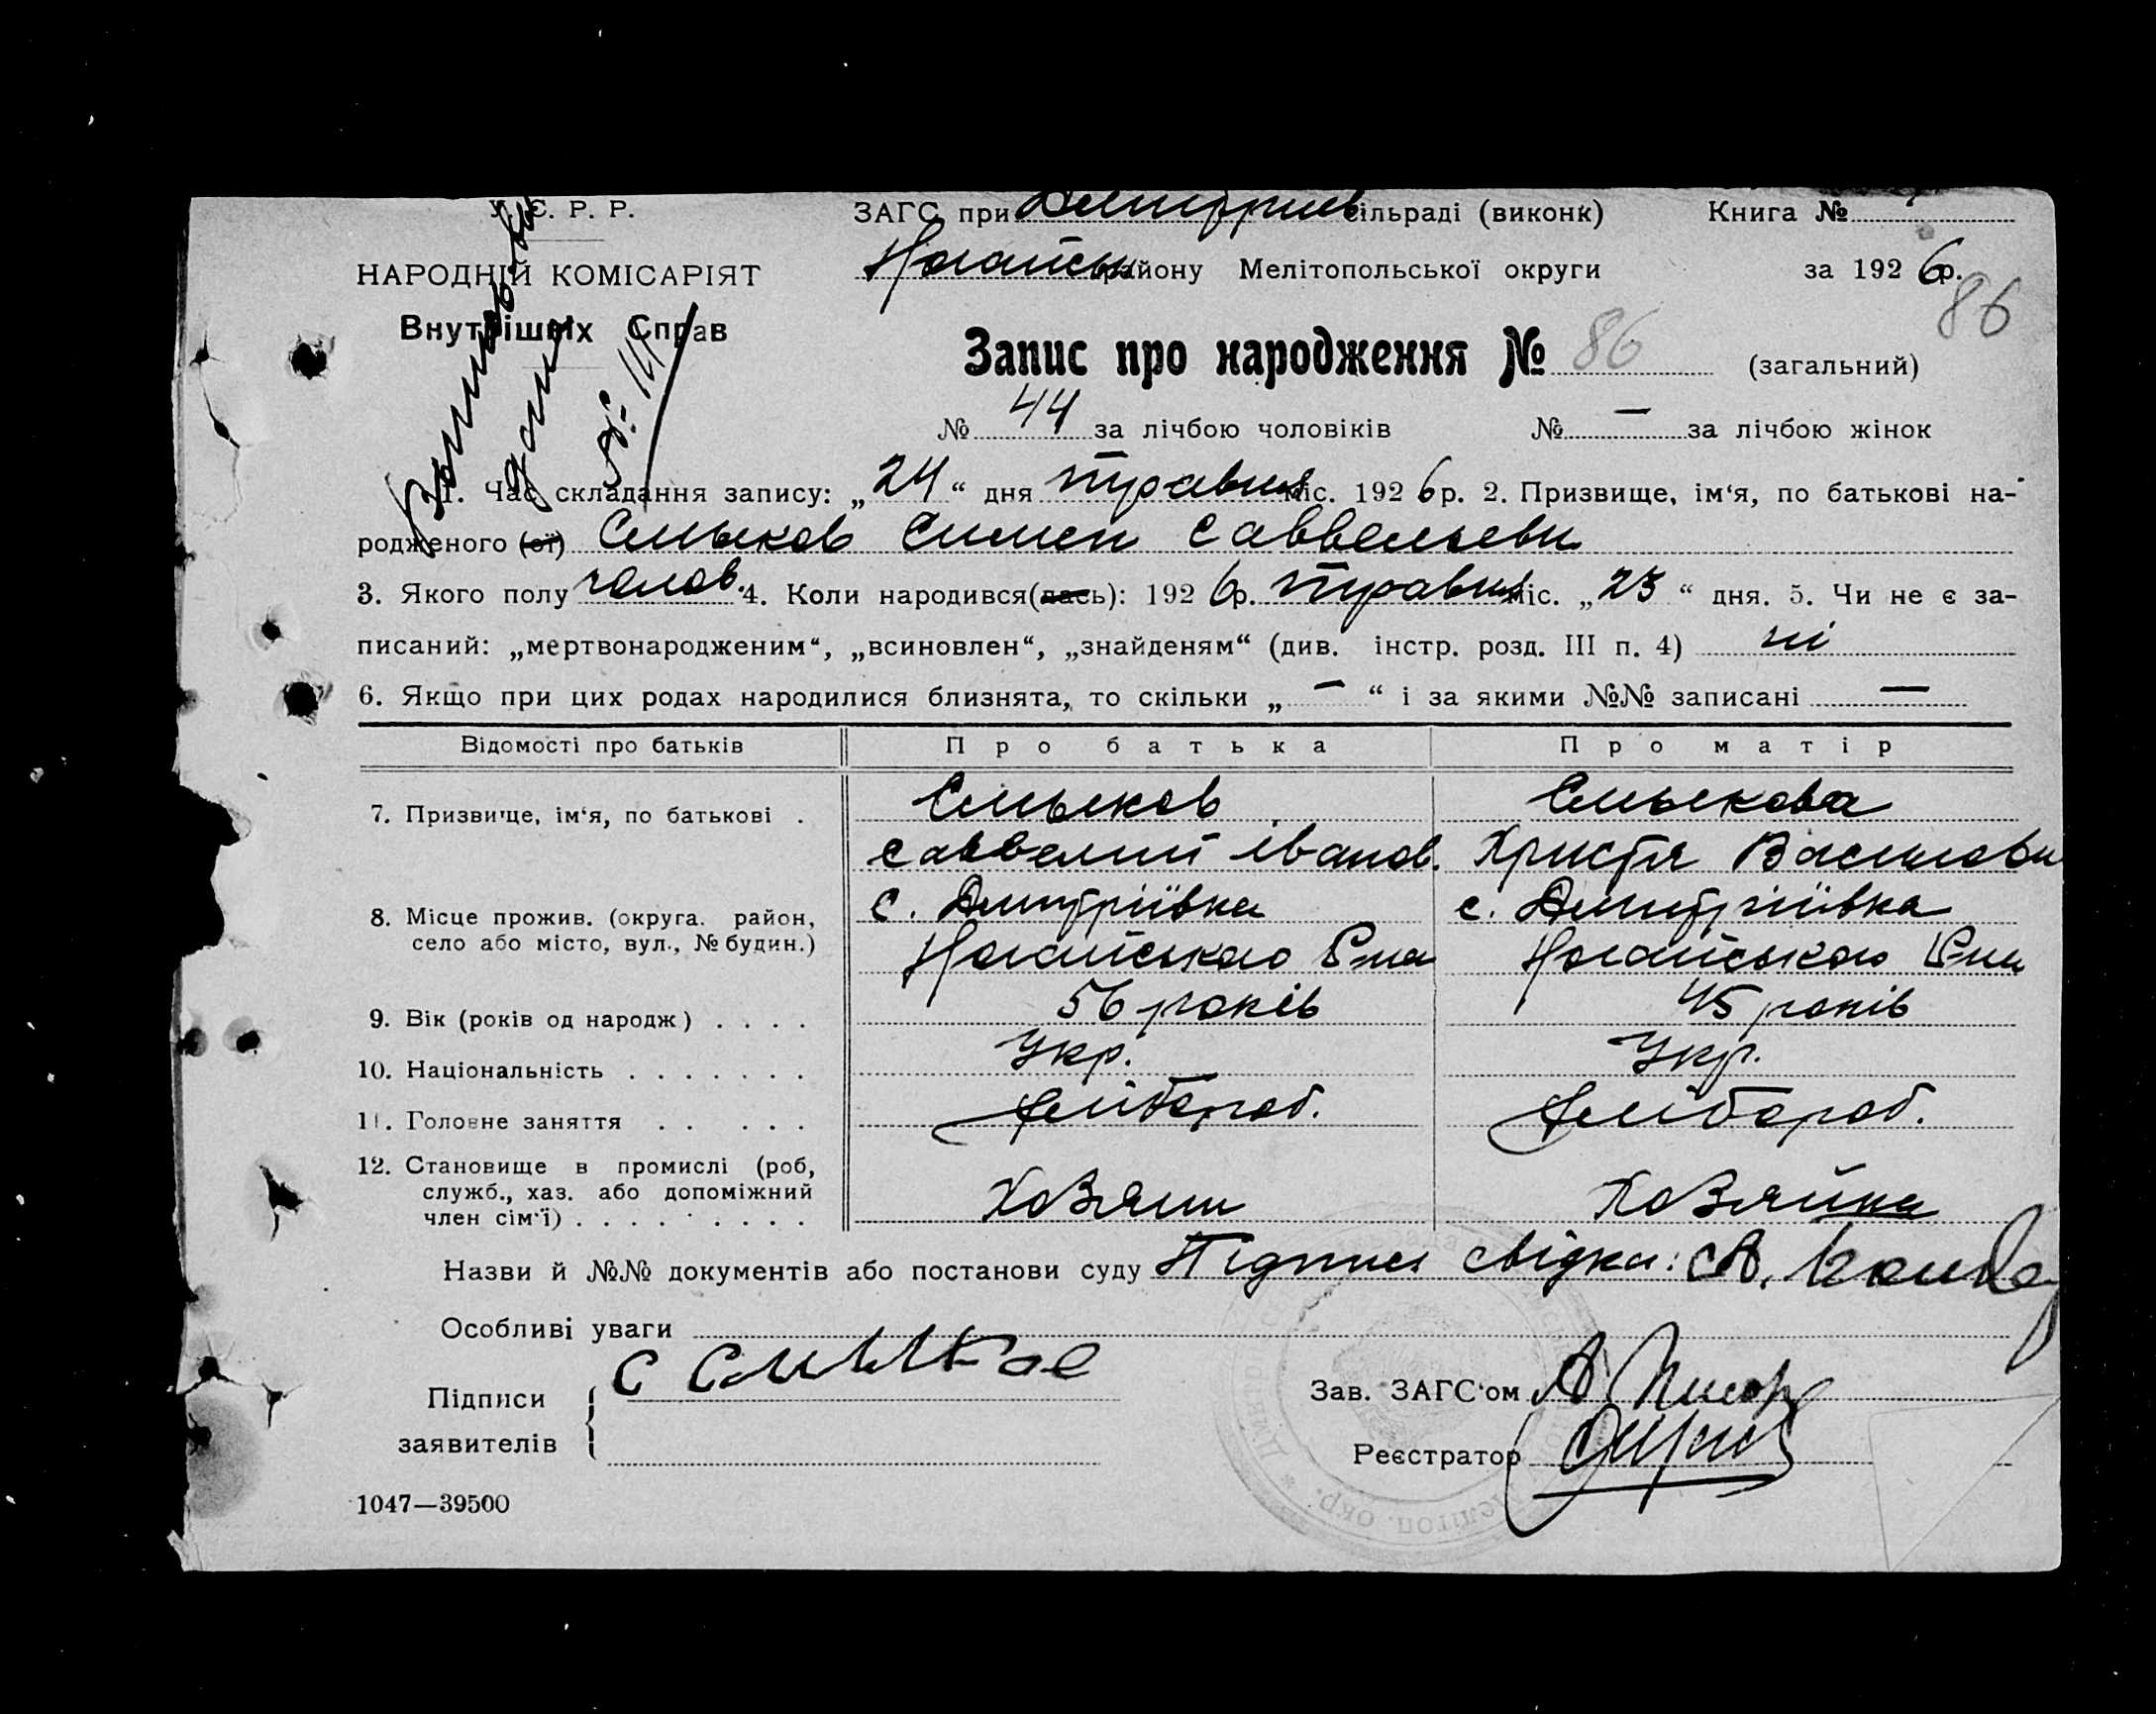 У. С. Р. Р.
НАРОДНІЙ КОМІСАРІЯТ
Внутрішніх Справ
ЗАГС при Дмитріїв сільраді (виконк)
Книга №
Ногайськ району Мелітопольської округи
за 1926 р.
86
Запис про народження № 86 (загальний)
№ 44 за лічбою чоловіків № — за лічбою жінок
1. Час складання запису: „24“ дня травня міс. 1926 р. 2. Призвище, ім‘я, по батькові на-
родженого (ої) Смыков Симен Саввельеви
3. Якого полу чолов. 4. Коли народився(лась): 1926 р. травня міс. „23“ дня. 5. Чи не є за-
писаний: „мертвонародженим“, „всиновлен“, „знайденям“ (див. інстр. розд. III п. 4) ні
6. Якщо при цих родах народилися близнята, то скільки „ — “ і за якими №№ записані —
Відомості про батьків Про батька Про матір
7. Призвище, ім‘я, по батькові . Смыков Смыкова
Саввелий Іванов. Христя Василови
8. Місце прожив. (округа. район, с. Дмитріївка с. Дмитріївка
село або місто, вул., № будин.) Ногайського Р-на Ногайського Р-на
9. Вік (років од народж) . . . . 56 років 45 років
10. Національність . . . . . . . Укр. Укр.
11. Головне заняття . . . . . Хлібороб. Хлібороб.
12. Становище в промислі (роб,
служб., хаз. або допоміжний
член сім‘ї) . . . . . . . . . Хозяин Хозяйка
Назви й №№ документів або постанови суду Підписи свідка: А.
Особливі уваги
Підписи
заявителів
С Смыков
Зав. ЗАГС‘ом
Реєстратор
1047—39500